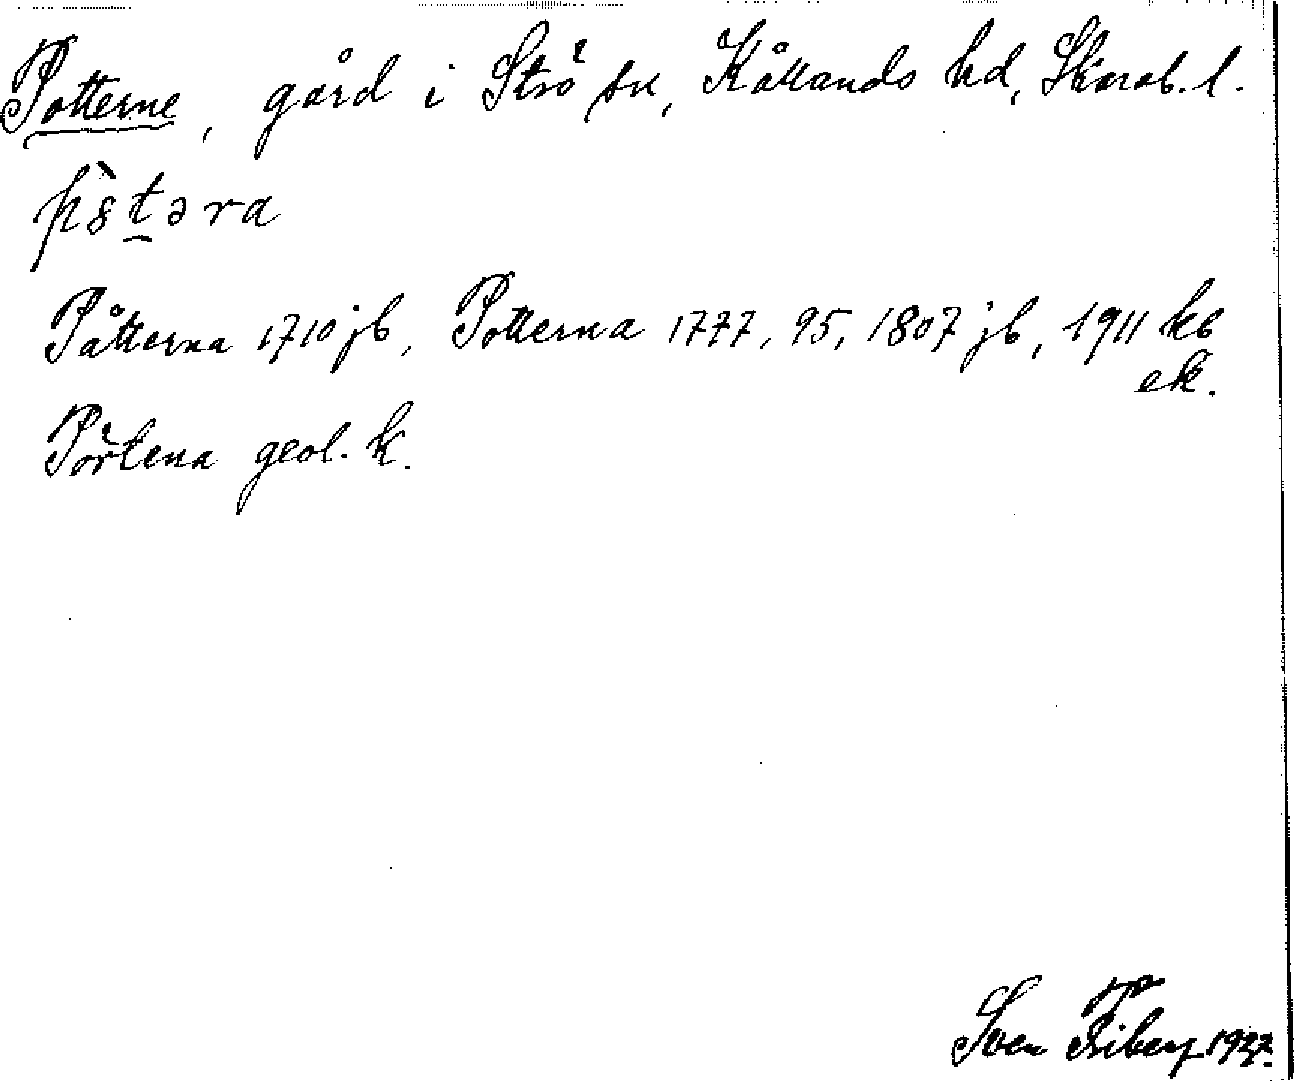 Potterne, gård i Strö sn, Kållands hd, Skarab. l.
Påtterna 1710 jb, Potterna 1777, 95, 1807 jb, 1911 kb
ek.
Pörtena geol. k.
Sven Friberg 1927.